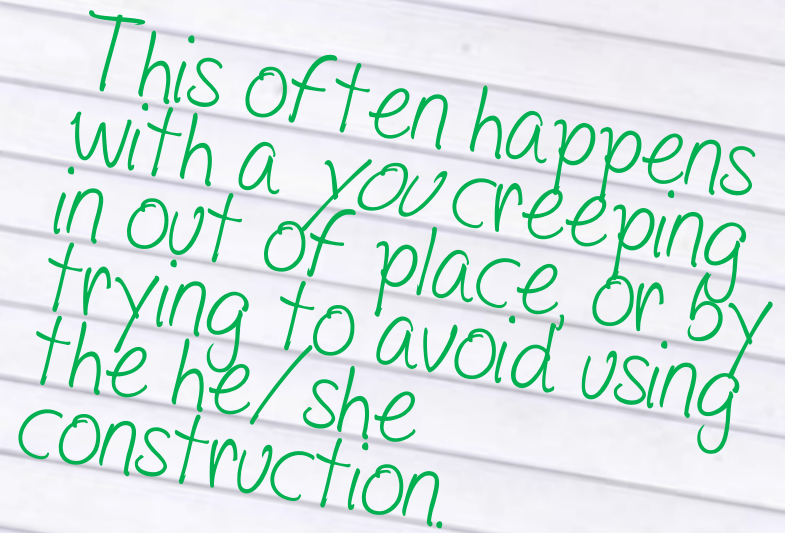 This often happens
with a you creeping
in out of place, or by
trying to avoid using
the he/she
construction.